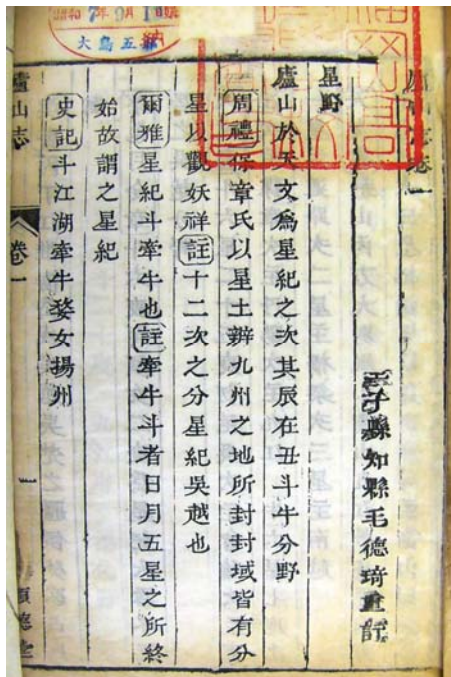 昭和7年9月1日
大鳥五
廬山志卷一
星子縣知縣毛德琦重訂
星野
廬山於天文爲星紀之次其辰在丑斗牛分野
周禮保章氏以星土辨九州之地所封封域皆有分
星以觀妖祥註十二次之分星紀吳越也
爾雅星紀斗牽牛也註牽牛斗者日月五星之所終
始故謂之星紀
史記斗江湖牽牛婺女揚州
廬山志
卷一
一
順德堂